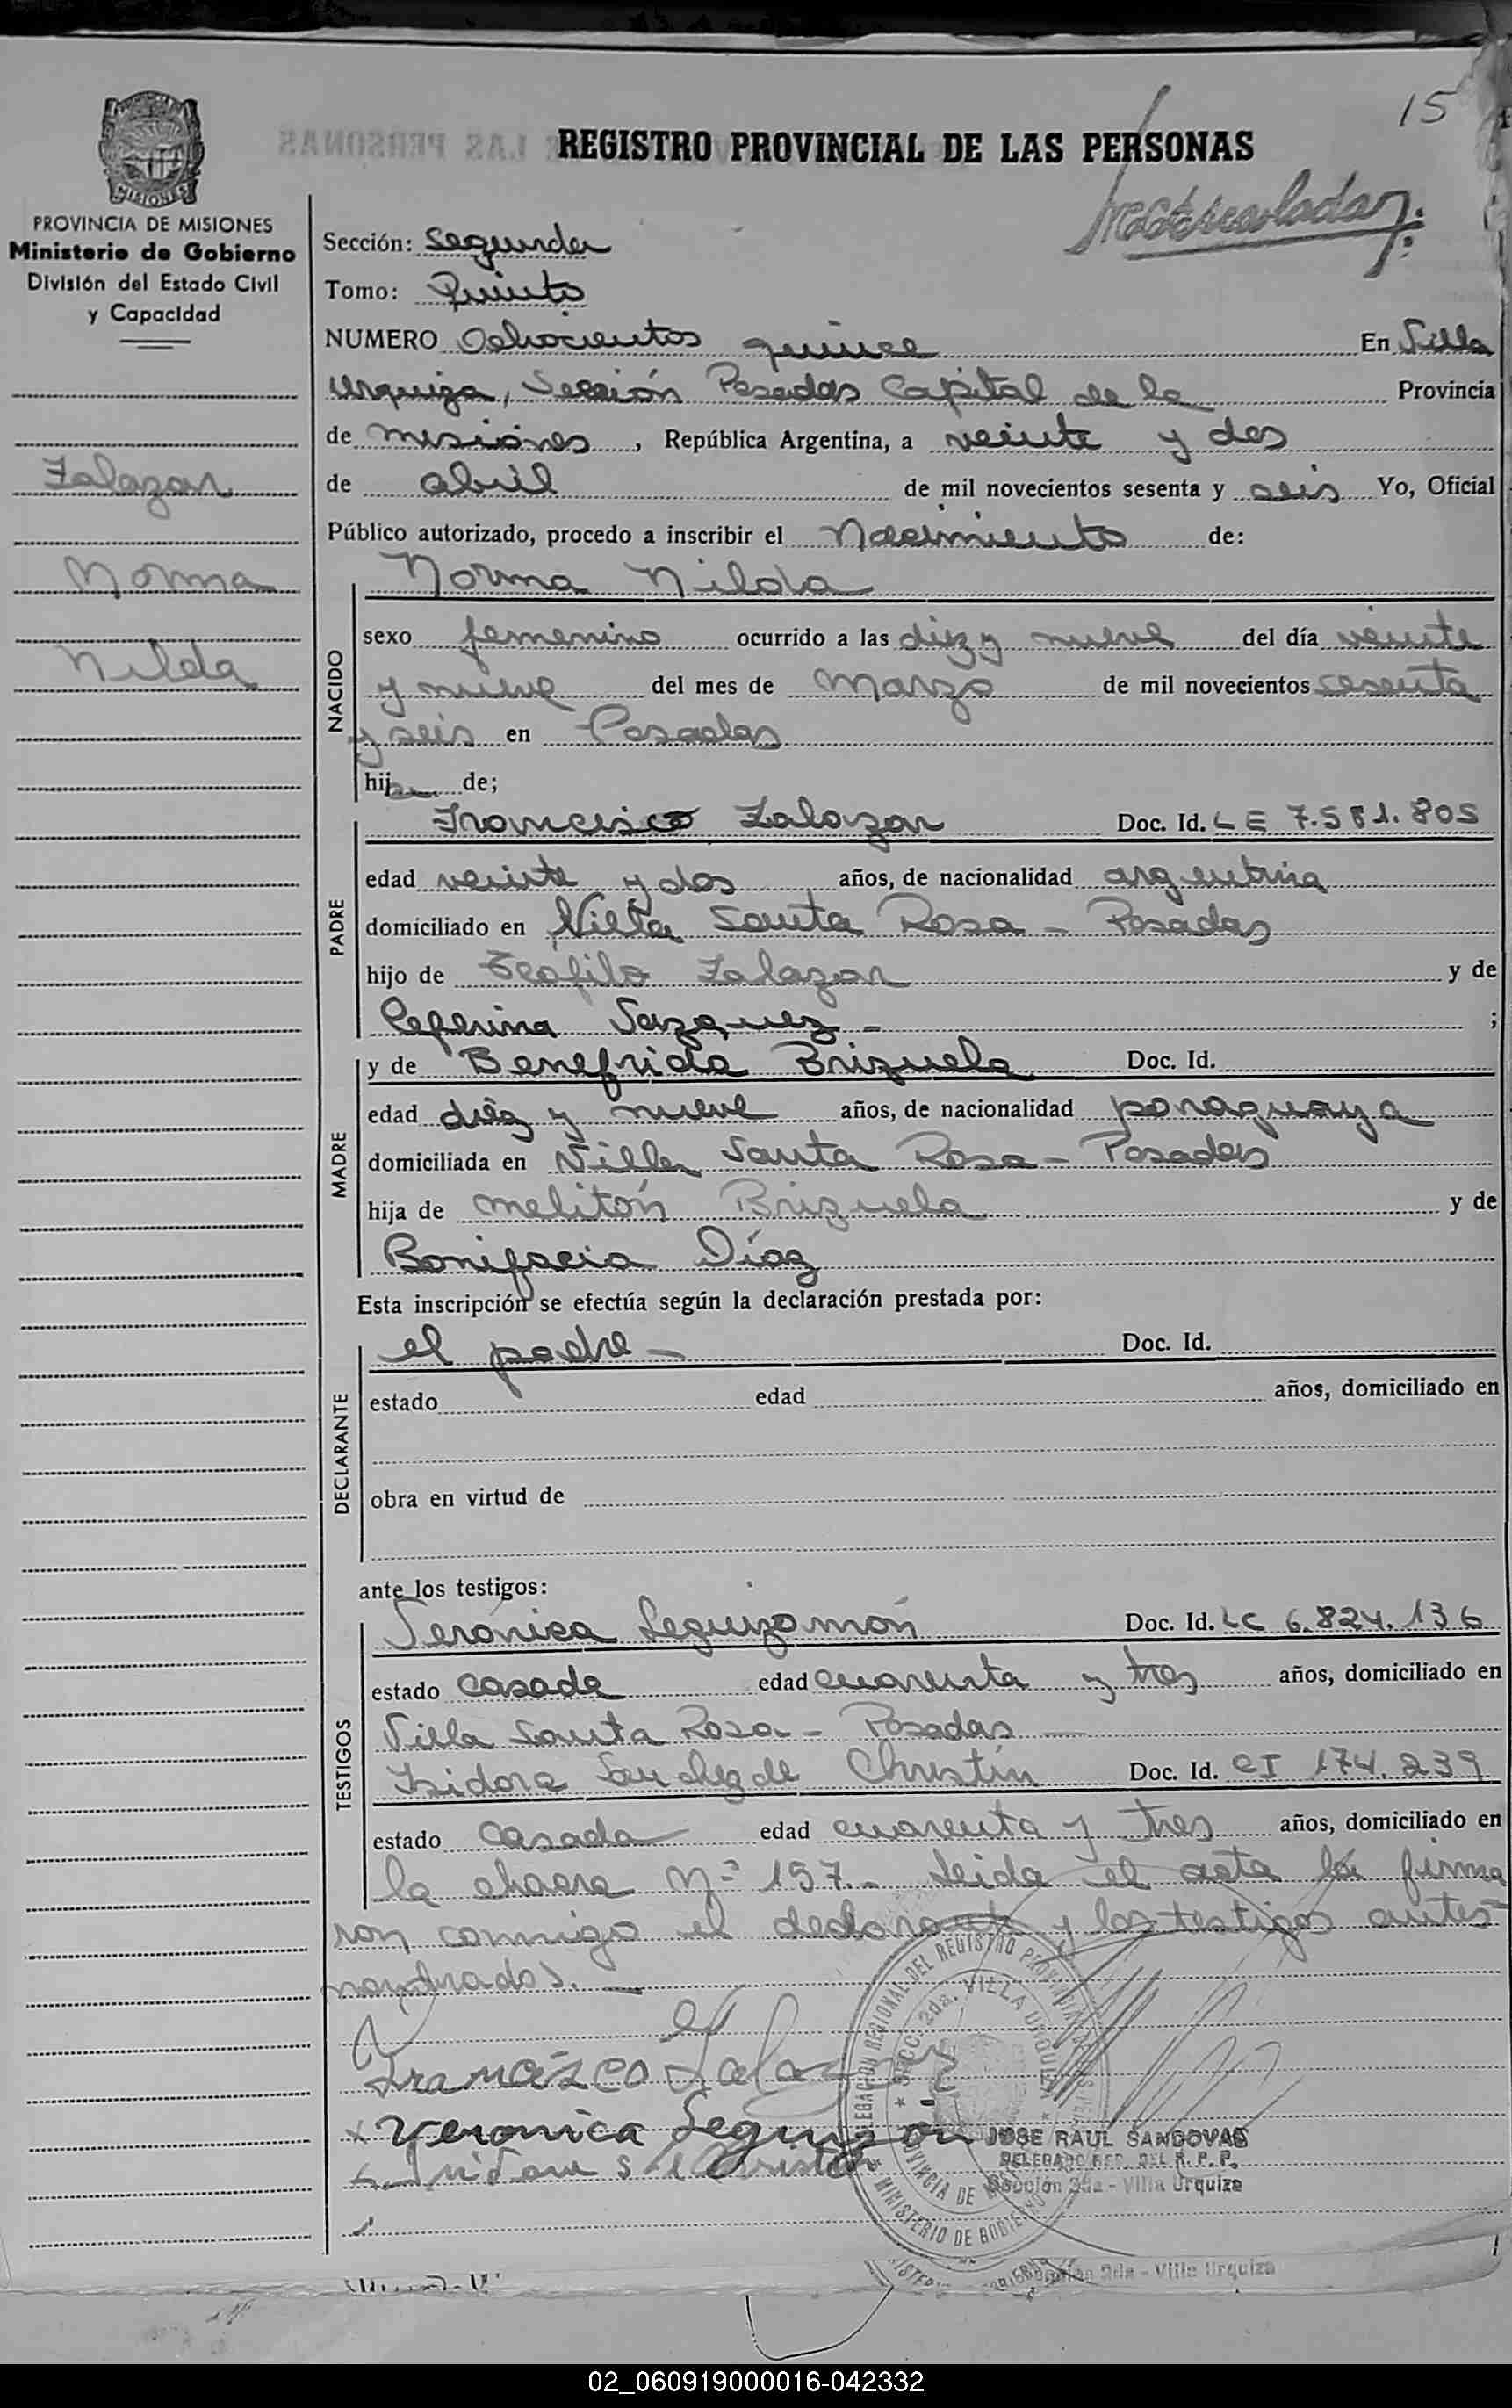 15
REGISTRO PROVINCIAL DE LAS PERSONAS
MISIONES
PROVINCIA DE MISIONES
Ministerio de Gobierno
División del Estado Civil
y Capacidad
Zalazar
Norma
Nilda
Sección: Segunda
Tomo: Quinto
NUMERO Ochocientos quince En Villa
Urquiza, Sección Posadas Capital de la Provincia
de misiones, República Argentina, a veinte y dos
de abril de mil novecientos sesenta y seis Yo, Oficial
Público autorizado, procedo a inscribir el Nacimiento de:
Norma Nilda
NACIDO
sexo femenino ocurrido a las diez y nueve del día veinte
y nueve del mes de Marzo de mil novecientos sesenta
y seis en Posadas
hija de;
PADRE
Francisco Zalazar Doc. Id. LE 7.581.805
edad veinte y dos años, de nacionalidad argentina
domiciliado en Villa Santa Rosa - Posadas
hijo de Teófilo Zalazar y de
Ceferina Vazquez - ;
MADRE
y de Benefrida Brizuela Doc. Id.
edad diez y nueve años, de nacionalidad paraguaya
domiciliada en Villa Santa Rosa - Posadas
hija de Melitón Brizuela y de
Bonifacia Díaz
Esta inscripción se efectúa según la declaración prestada por:
DECLARANTE
el padre - Doc. Id.
estado edad años, domiciliado en
obra en virtud de
ante los testigos:
TESTIGOS
Verónica Leguizamón Doc. Id. LC 6.824.136
estado casada edad cuarenta y tres años, domiciliado en
Villa Santa Rosa - Posadas
Isidora Sanchez de Christin Doc. Id. CI 174.239
estado casada edad cuarenta y tres años, domiciliado en
la chacra Nº 157.- Leida el acta la firma
ron conmigo el declarante y los testigos antes
nombrados.
Francisco Zalazar
Veronica Leguizamon
DELEGACION REGIONAL DEL REGISTRO PROVINCIAL DE LAS PERSONAS
SECC. 2da. VILLA URQUIZA
PROVINCIA DE MISIONES
MINISTERIO DE GOBIERNO
JOSE RAUL SANDOVAL
DELEGADO REG. DEL R. P. P.
Sección 2da - Villa Urquiza
Sección 2da - Villa Urquiza
02_060919000016-042332